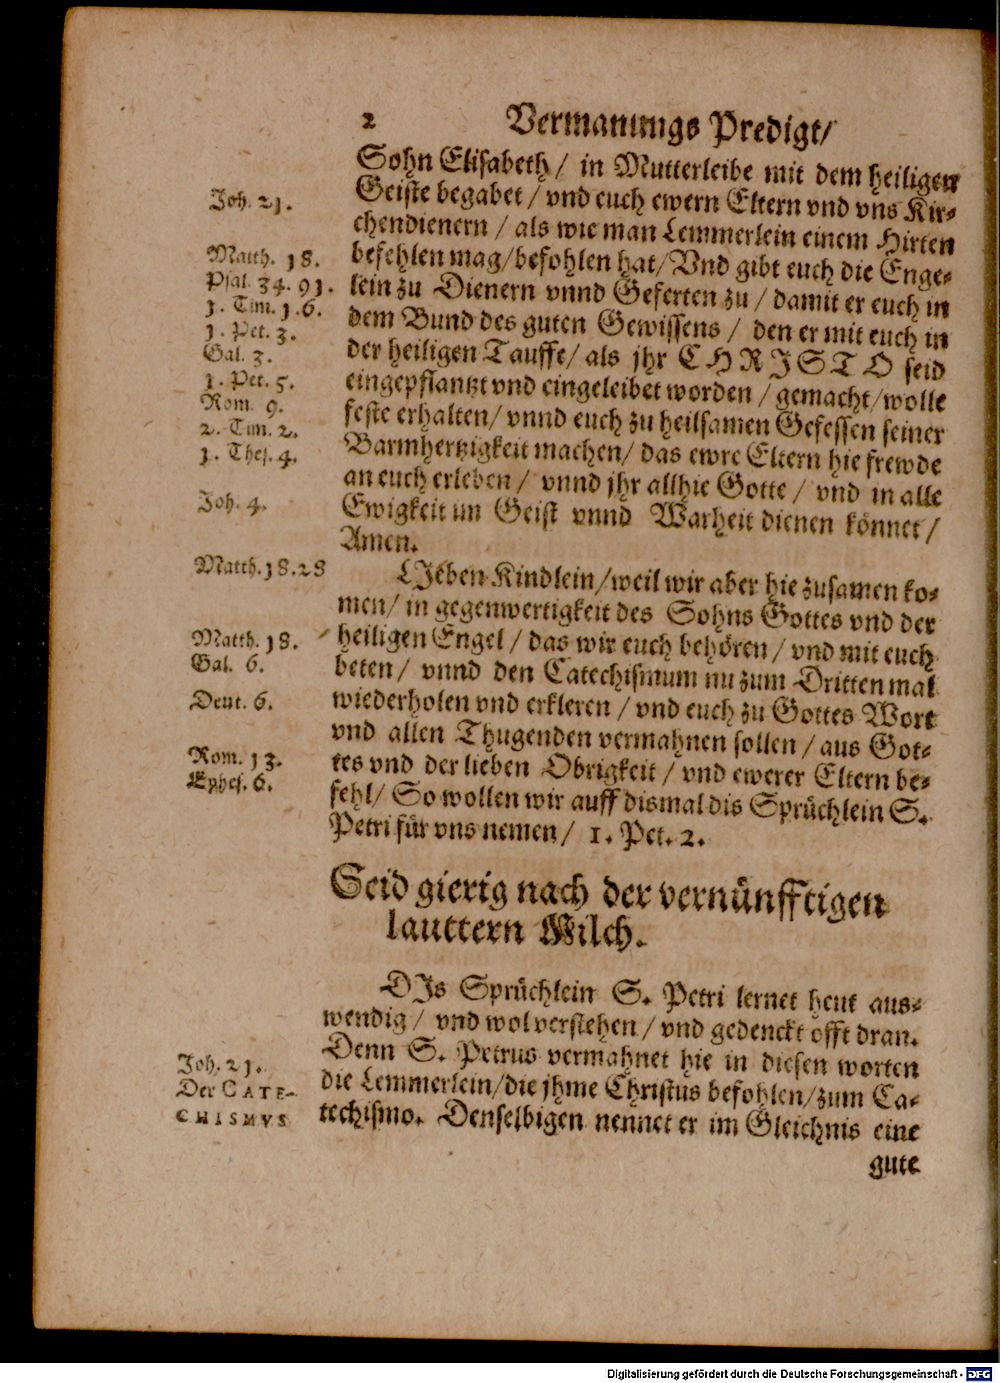 2 Vermanungs Predigt/
Sohn Elisabeth / in Mutterleibe mit dem heiligen
Geiste begabet / vnd euch ewern Eltern vnd vns Kir-
Joh. 21.
chendienern / als wie man Lemmerlein einem Hirten
befehlen mag/befohlen hat/Vnd gibt euch die Enge-
Matth. 18.
lein zu Dienern vnnd Geferten zu / damit er euch in
Psal. 34. 91.
dem Bund des guten Gewissens / den er mit euch in
1. Tim. 1.6.
1. Pet. 3.
der heiligen Tauffe/ als jhr CHRISTO seid
Gal. 3.
eingepflantzt vnd eingeleibet worden / gemacht/wolle
1. Pet. 5.
feste erhalten/ vnnd euch zu heilsamen Gefessen seiner
Rom. 9.
Barmhertzigkeit machen/ das ewre Eltern hie frewde
2. Tim. 2.
1. Thes. 4.
an euch erleben / vnnd jhr allhie Gotte / vnd in alle
Ewigkeit im Geist vnnd Warheit dienen könnet /
Joh. 4.
Amen.
LIeben Kindlein/weil wir aber hie zusamen ko-
Matth. 18.28
men/ in gegenwertigkeit des Sohns Gottes vnd der
heiligen Engel / das wir euch behören / vnd mit euch
Matth. 18.
beten / vnnd den Catechismum nu zum Dritten mal
Gal. 6.
wiederholen vnd erkleren / vnd euch zu Gottes Wort
Deut. 6.
vnd allen Thugenden vermahnen sollen / aus Got-
tes vnd der lieben Obrigkeit / vnd ewerer Eltern be-
Rom. 13.
fehl/ So wollen wir auff dismal dis Sprüchlein S.
Ephes. 6.
Petri für vns nemen / 1. Pet. 2.
Seid gierig nach der vernünfftigen
lauttern Milch.
DIs Sprüchlein S. Petri lernet heut aus-
wendig / vnd wol verstehen / vnd gedenckt offt dran.
Denn S. Petrus vermahnet hie in diesen worten
die Lemmerlein/die jhme Christus befohlen/zum Ca-
Joh. 21.
Der CATE-
techismo. Denselbigen nennet er im Gleichnis eine
CHISMVS
gute
Digitalisierung gefördert durch die Deutsche Forschungsgemeinschaft - DFG